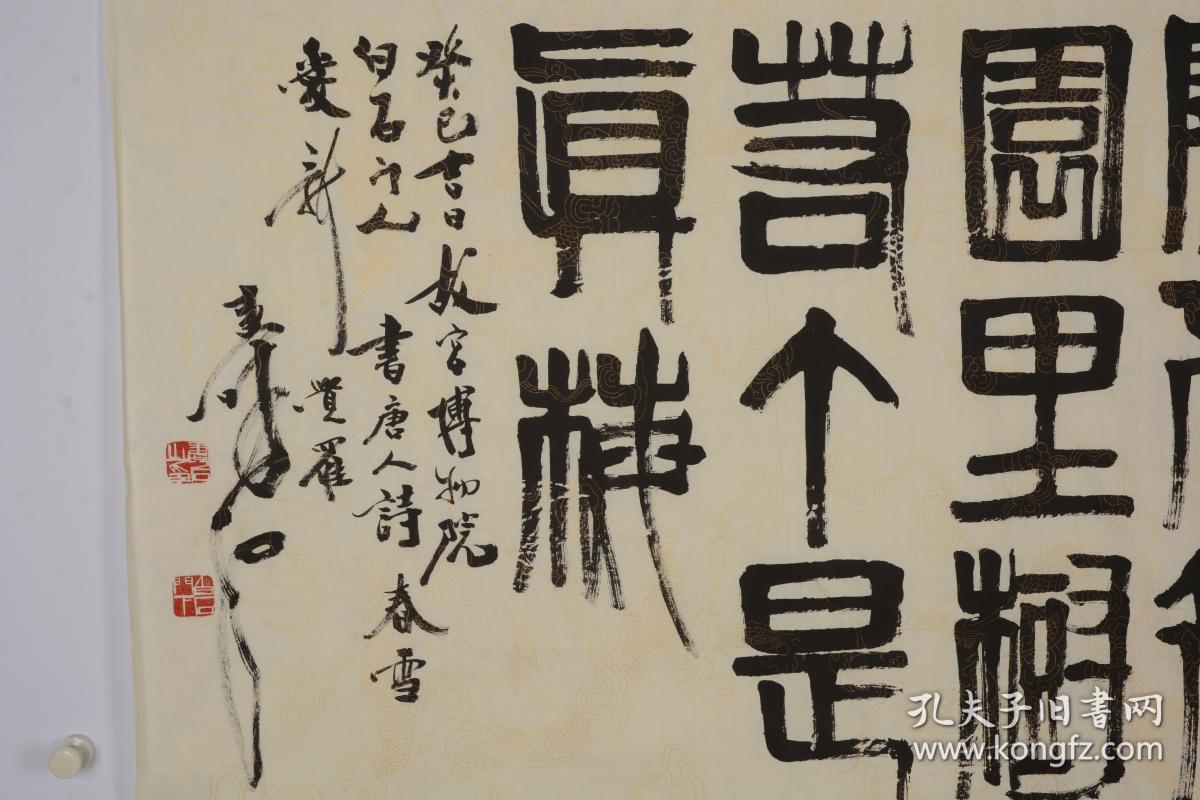 園里樹
若个是
眞梅
癸巳吉日故宫博物院
白石门人書唐人詩春雪
愛新覺羅
孔夫子旧書网
www.kongfz.com